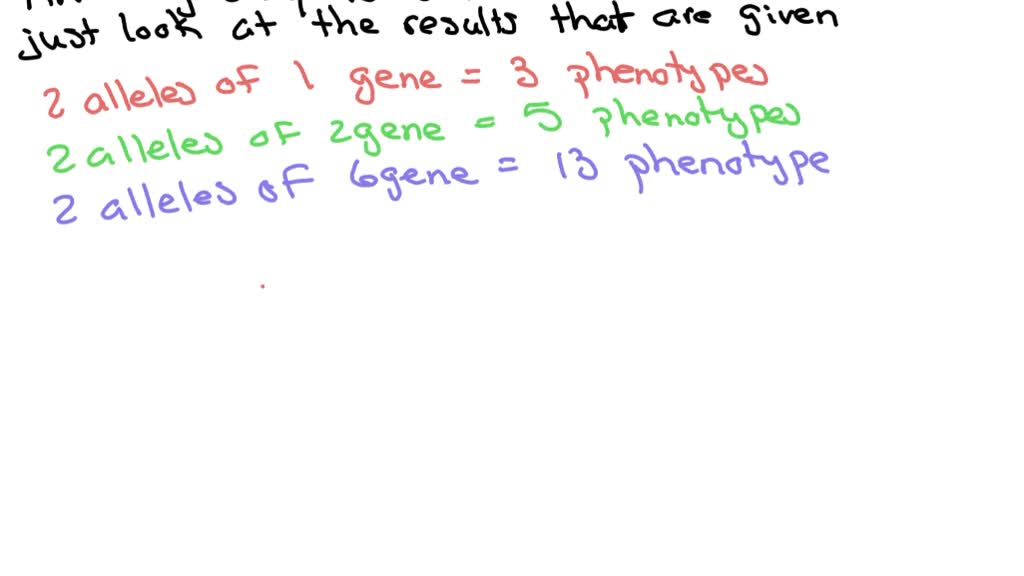 just look at the results that are given
2 alleles of 1 gene = 3 phenotypes
2 alleles of 2gene = 5 phenotypes
2 alleles of 6gene = 13 phenotype